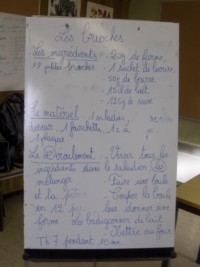 Les brioches
Les ingrédients : - 250g de farine,
12 petites brioches - 1 sachet de levure,
50g de beurre
15cl de lait
- 125g de sucre
Le matériel : 1 saladier
1 fourchette, 1c à
1 plaque
Le déroulement - Verser tous les
ingrédients dans le saladier
mélanger - Faire une boule
et la - Couper la boule
en 12 leur donner une
forme - Les badigeonner de lait
- Mettre au four
Th 7 pendant 10 mn